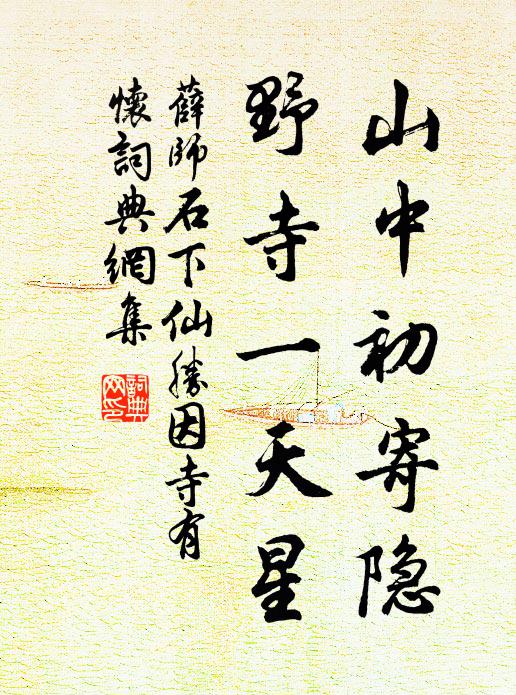 山中初寄隐
野寺一天星
薛師石下仙勝因寺有
懷詞典網集
詞典網印